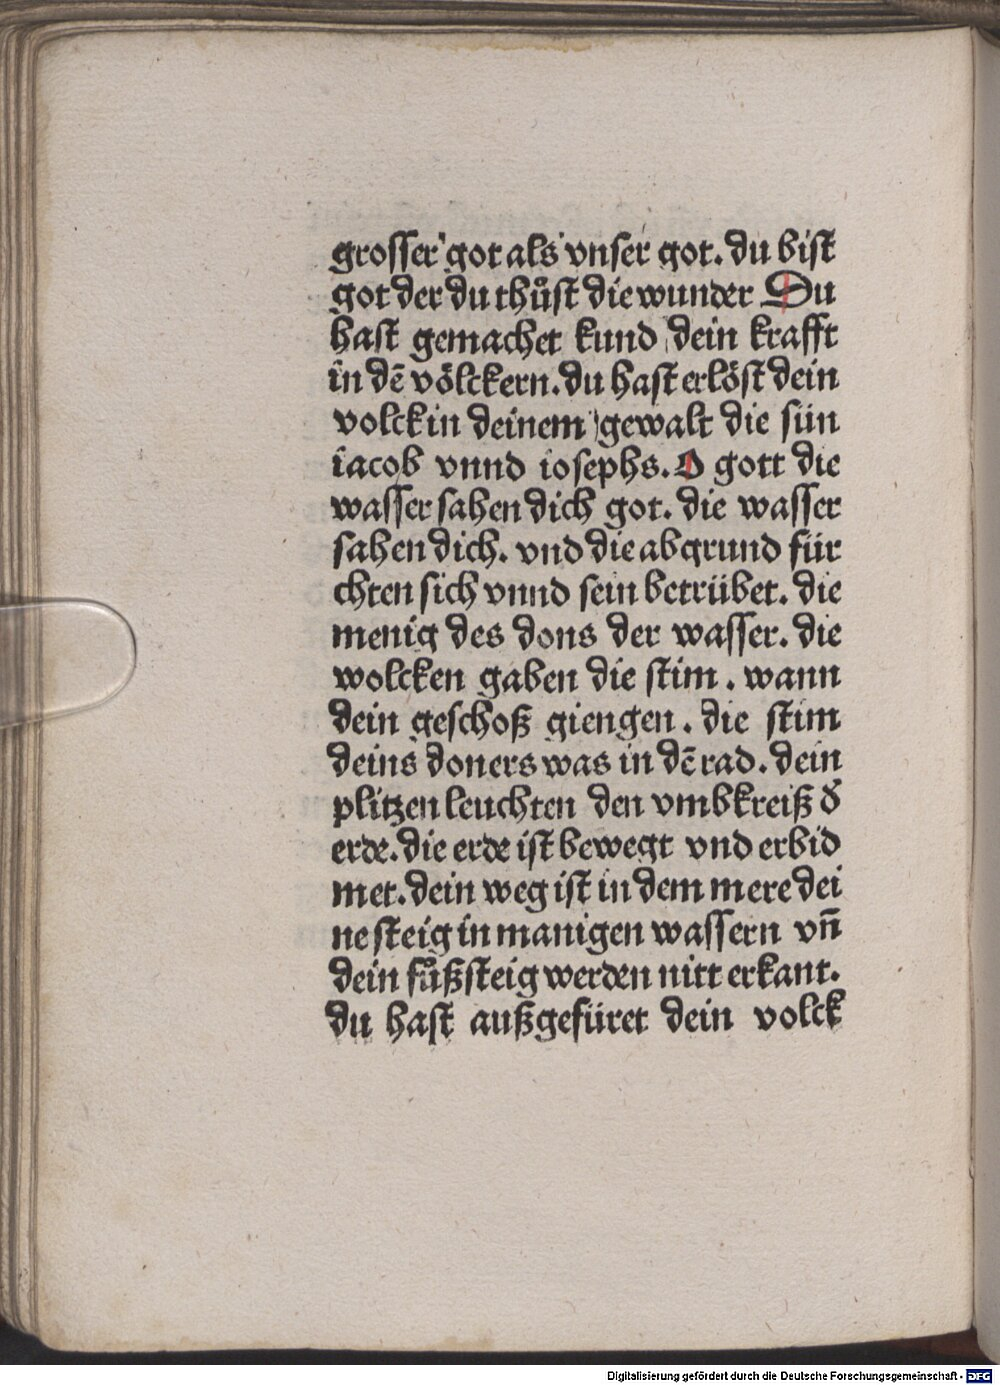 grosser got als vnser got. du bist
got der du thůst die wunder Du
hast gemachet kund dein krafft
in dē völckern. du hast erlöst dein
volck in deinem gewalt die sün
iacob vnnd iosephs. O gott die
wasser sahen dich got. die wasser
sahen dich. vnd die abgrund für
chten sich vnnd sein betrübet. die
menig des dons der wasser. die
wolcken gaben die stim. wann
dein geschoß giengen. die stim
deins doners was in dē rad. dein
plitzen leuchten den vmbkreiß d̕
erde. die erde ist bewegt vnd erbid
met. dein weg ist in dem mere dei
ne steig in manigen wassern vn̄
dein fůßsteig werden nitt erkant.
du hast außgefüret dein volck
Digitalisierung gefördert durch die Deutsche Forschungsgemeinschaft - DFG